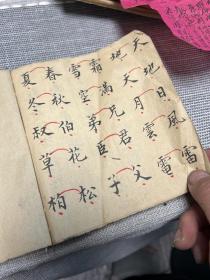 天地日風雷
地天月雲
霜滿兄君父
雪空弟臣子
春秋伯花松
夏冬叔草柏